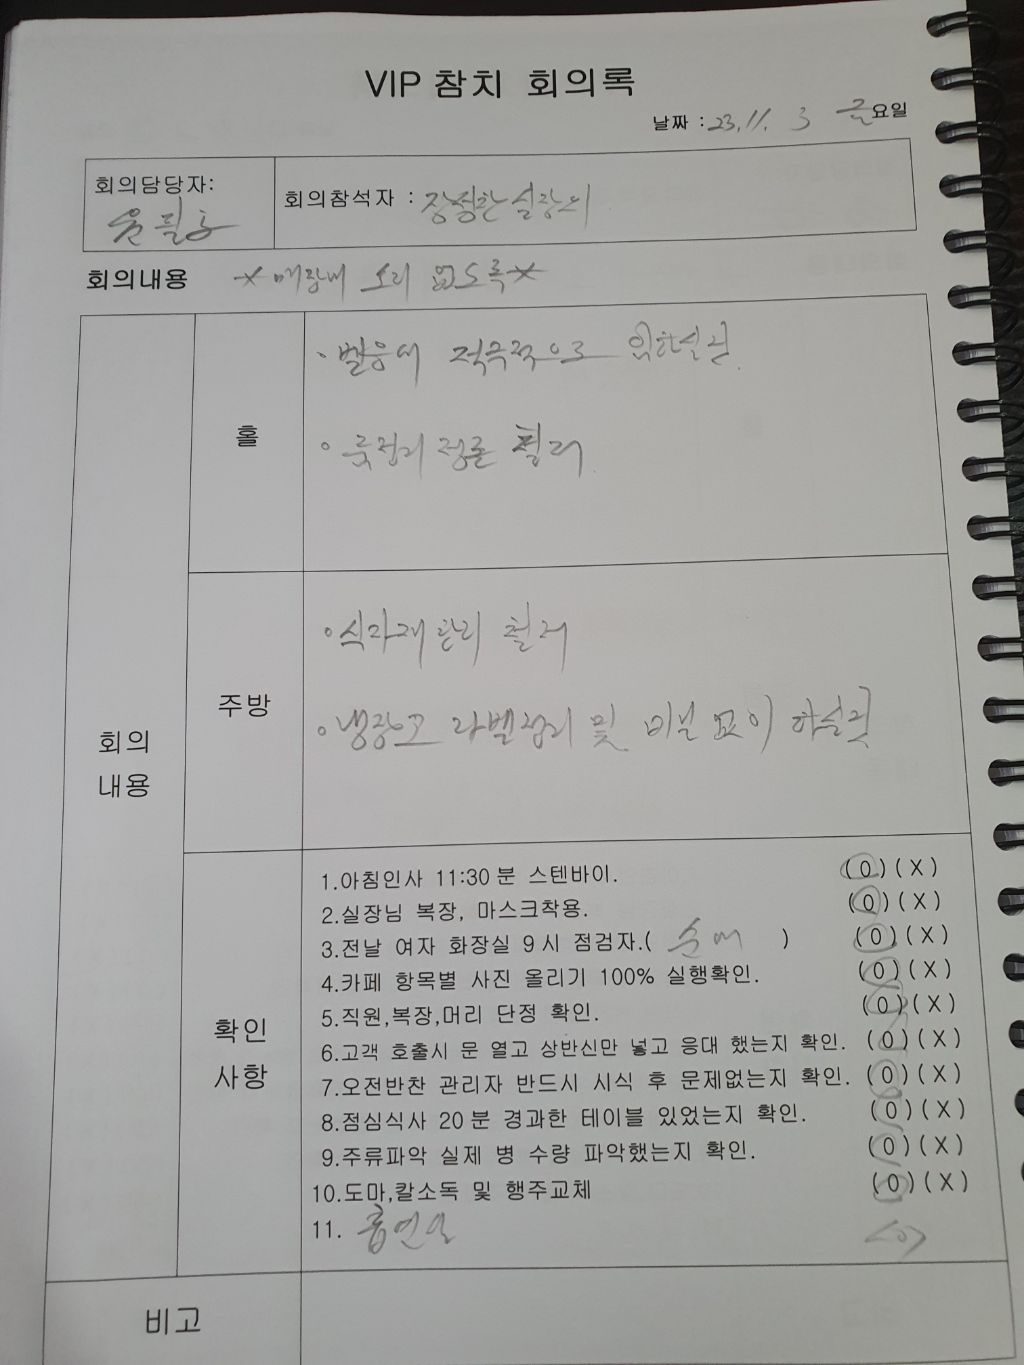 VIP 참치 회의록
날짜 : 23. 11. 3 금요일
회의담당자:
윤필용
회의참석자 : 장정환 실장외
회의내용 * 매장내 소리 없도록 *
홀
• 벨응대 적극적으로
• 룸정리 정돈 철저
회의
내용
주방
• 식자재 관리 철저
• 냉장고 라벨정리 및 비닐 없이 하실것
확인
사항
1.아침인사 11:30분 스텐바이. (O)(X)
2.실장님 복장, 마스크착용. (O)(X)
3.전날 여자 화장실 9시 점검자.( ) (O)(X)
4.카페 항목별 사진 올리기 100% 실행확인. (O)(X)
5.직원,복장,머리 단정 확인. (O)(X)
6.고객 호출시 문 열고 상반신만 넣고 응대 했는지 확인. (O)(X)
7.오전반찬 관리자 반드시 시식 후 문제없는지 확인. (O)(X)
8.점심식사 20분 경과한 테이블 있었는지 확인. (O)(X)
9.주류파악 실제 병 수량 파악했는지 확인. (O)(X)
10.도마,칼소독 및 행주교체 (O)(X)
11. 흡연실 (O)
비고